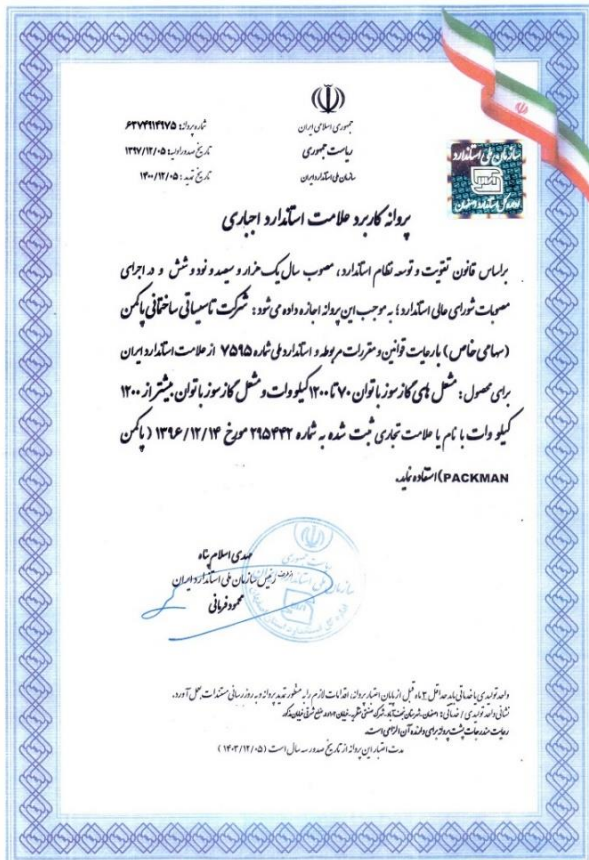 جمهوری اسلامی ایران
ریاست جمهوری
سازمان ملی استاندارد ایران
شماره پروانه: ۶۳۷۴۹۱۴۹۷۵
تاریخ صدور اولیه: ۱۳۹۷/۱۲/۰۵
تاریخ تمدید: ۱۴۰۰/۱۲/۰۵
سازمان ملی استاندارد
اداره کل استاندارد اصفهان
پروانه کاربرد علامت استاندارد اجباری
براساس قانون تقویت و توسعه نظام استاندارد، مصوب سال یک هزار و سیصد و نود و شش و در اجرای
مصوبات شورای عالی استاندارد؛ به موجب این پروانه اجازه داده می شود: شرکت تاسیساتی ساختمانی پاکمن
(سهامی خاص) با رعایت قوانین و مقررات مربوطه و استاندارد ملی شماره ۷۵۹۵ از علامت استاندارد ایران
برای محصول: مشعل های گاز سوز با توان ۷۰ تا ۱۲۰۰ کیلو وات و مشعل گاز سوز با توان بیشتر از ۱۲۰۰
کیلو وات با نام یا علامت تجاری ثبت شده به شماره ۲۹۵۴۴۲ مورخ ۱۳۹۶/۱۲/۱۴ (پاکمن
PACKMAN) استفاده نماید.
مهدی اسلام پناه
از طرف رئیس سازمان ملی استاندارد ایران
محمود فرمانی
واحد تولیدی یا خدماتی باید حداقل ۳ ماه قبل از پایان اعتبار پروانه، اقدامات لازم را به منظور تمدید پروانه و به روز رسانی مستندات بعمل آورد.
نشانی واحد تولیدی / خدماتی: اصفهان، شهرستان نجف آباد، شهرک صنعتی
رعایت مندرجات پشت پروانه برای دارنده آن الزامی است.
مدت اعتبار این پروانه از تاریخ صدور سه سال است (۱۴۰۳/۱۲/۰۵)